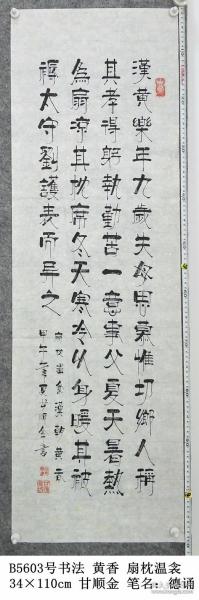 漢黄樂年九歲失母思慕惟切鄉人稱
其孝得躬執勤苦一意事父夏天暑熱
為扇涼其枕席冬天寒冷以身暖其被
褥太守劉護表而异之
甲午
B5603号书法 黄香 扇枕温衾
34×110cm 甘顺金 笔名：德诵